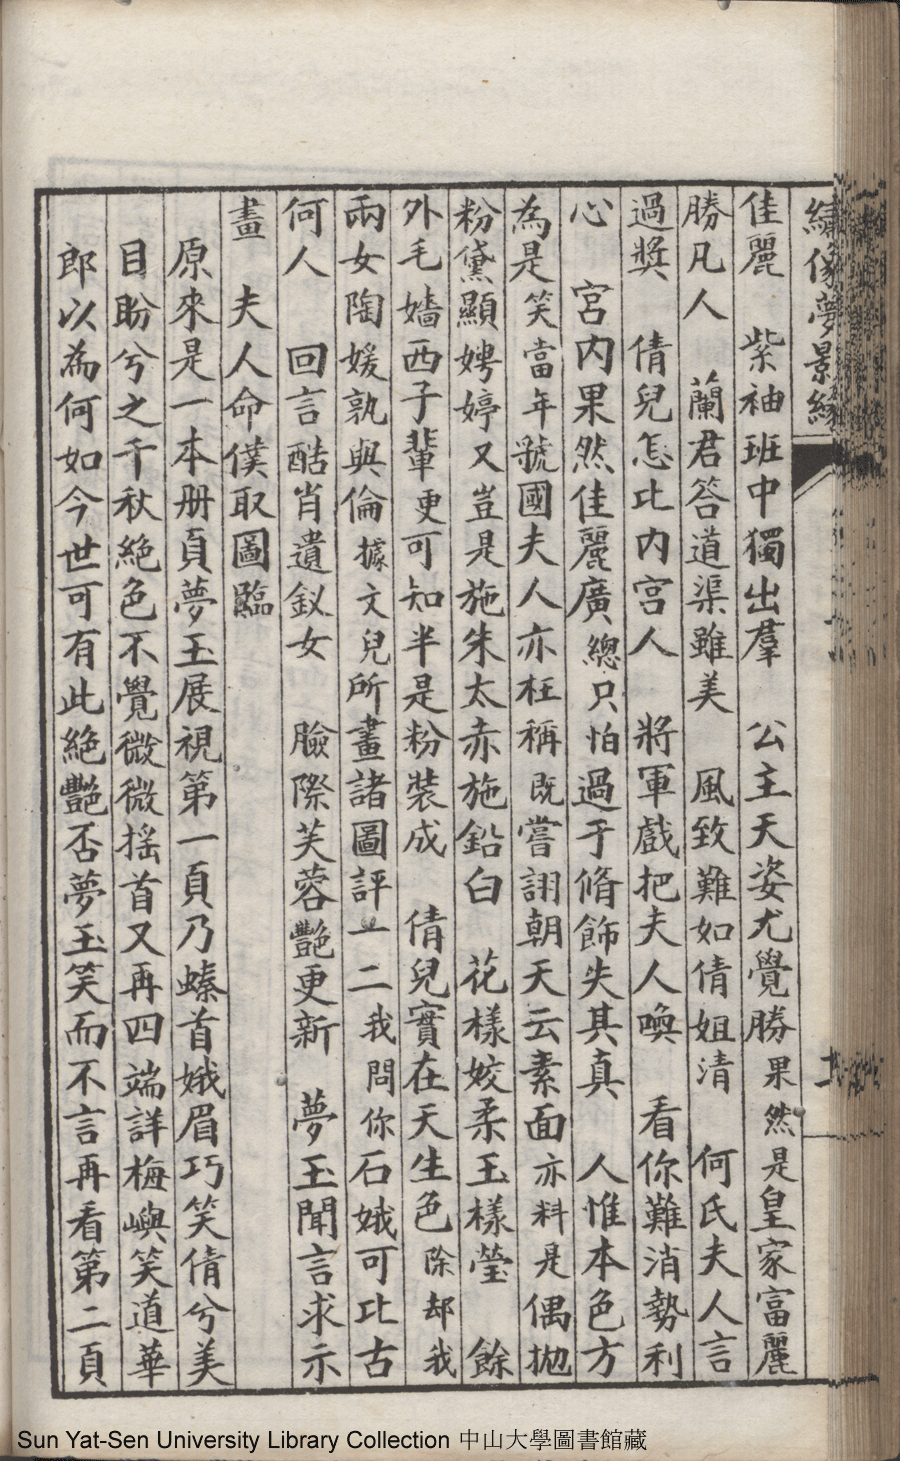 繡像夢景緣
佳麗　紫袖班中獨出羣　公主天姿尤覺勝果然是皇家富麗
勝凡人　蘭君答道渠雖美　風致難如倩姐清　何氏夫人言
過奬　倩兒怎比内宮人　將軍戲把夫人喚　看你難消勢利
心　宮内果然佳麗廣總只怕過于脩飾失其真　人惟本色方
為是笑當年虢國夫人亦枉稱既嘗詡朝天云素面亦料是偶拋
粉黛顯娉婷又豈是施朱太赤施鉛白　花樣姣柔玉樣瑩　餘
外毛嬙西子輩更可知半是粉裝成　倩兒實在天生色除却我
兩女陶媛孰與倫據文兒所畫諸圖評一二我問你石娥可比古
何人　回言酷肖遺釵女　臉際芙蓉艷更新　夢玉聞言求示
畫　夫人命僕取圖臨
原來是一本册頁夢玉展視第一頁乃螓首娥眉巧笑倩兮美
目盼兮之千秋絕色不覺微微搖首又再四端詳梅嶼笑道華
郎以為何如今世可有此絕艷否夢玉笑而不言再看第二頁
Sun Yat-Sen University Library Collection 中山大學圖書館藏